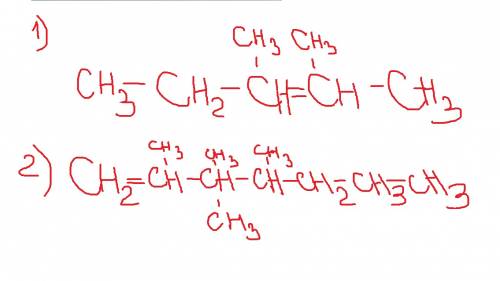 1)
CH3 CH3
CH3— CH2— CH=CH —CH3
2)
CH3 CH3 CH3
CH2=CH—CH—CH—CH2—CH3—CH3
CH3